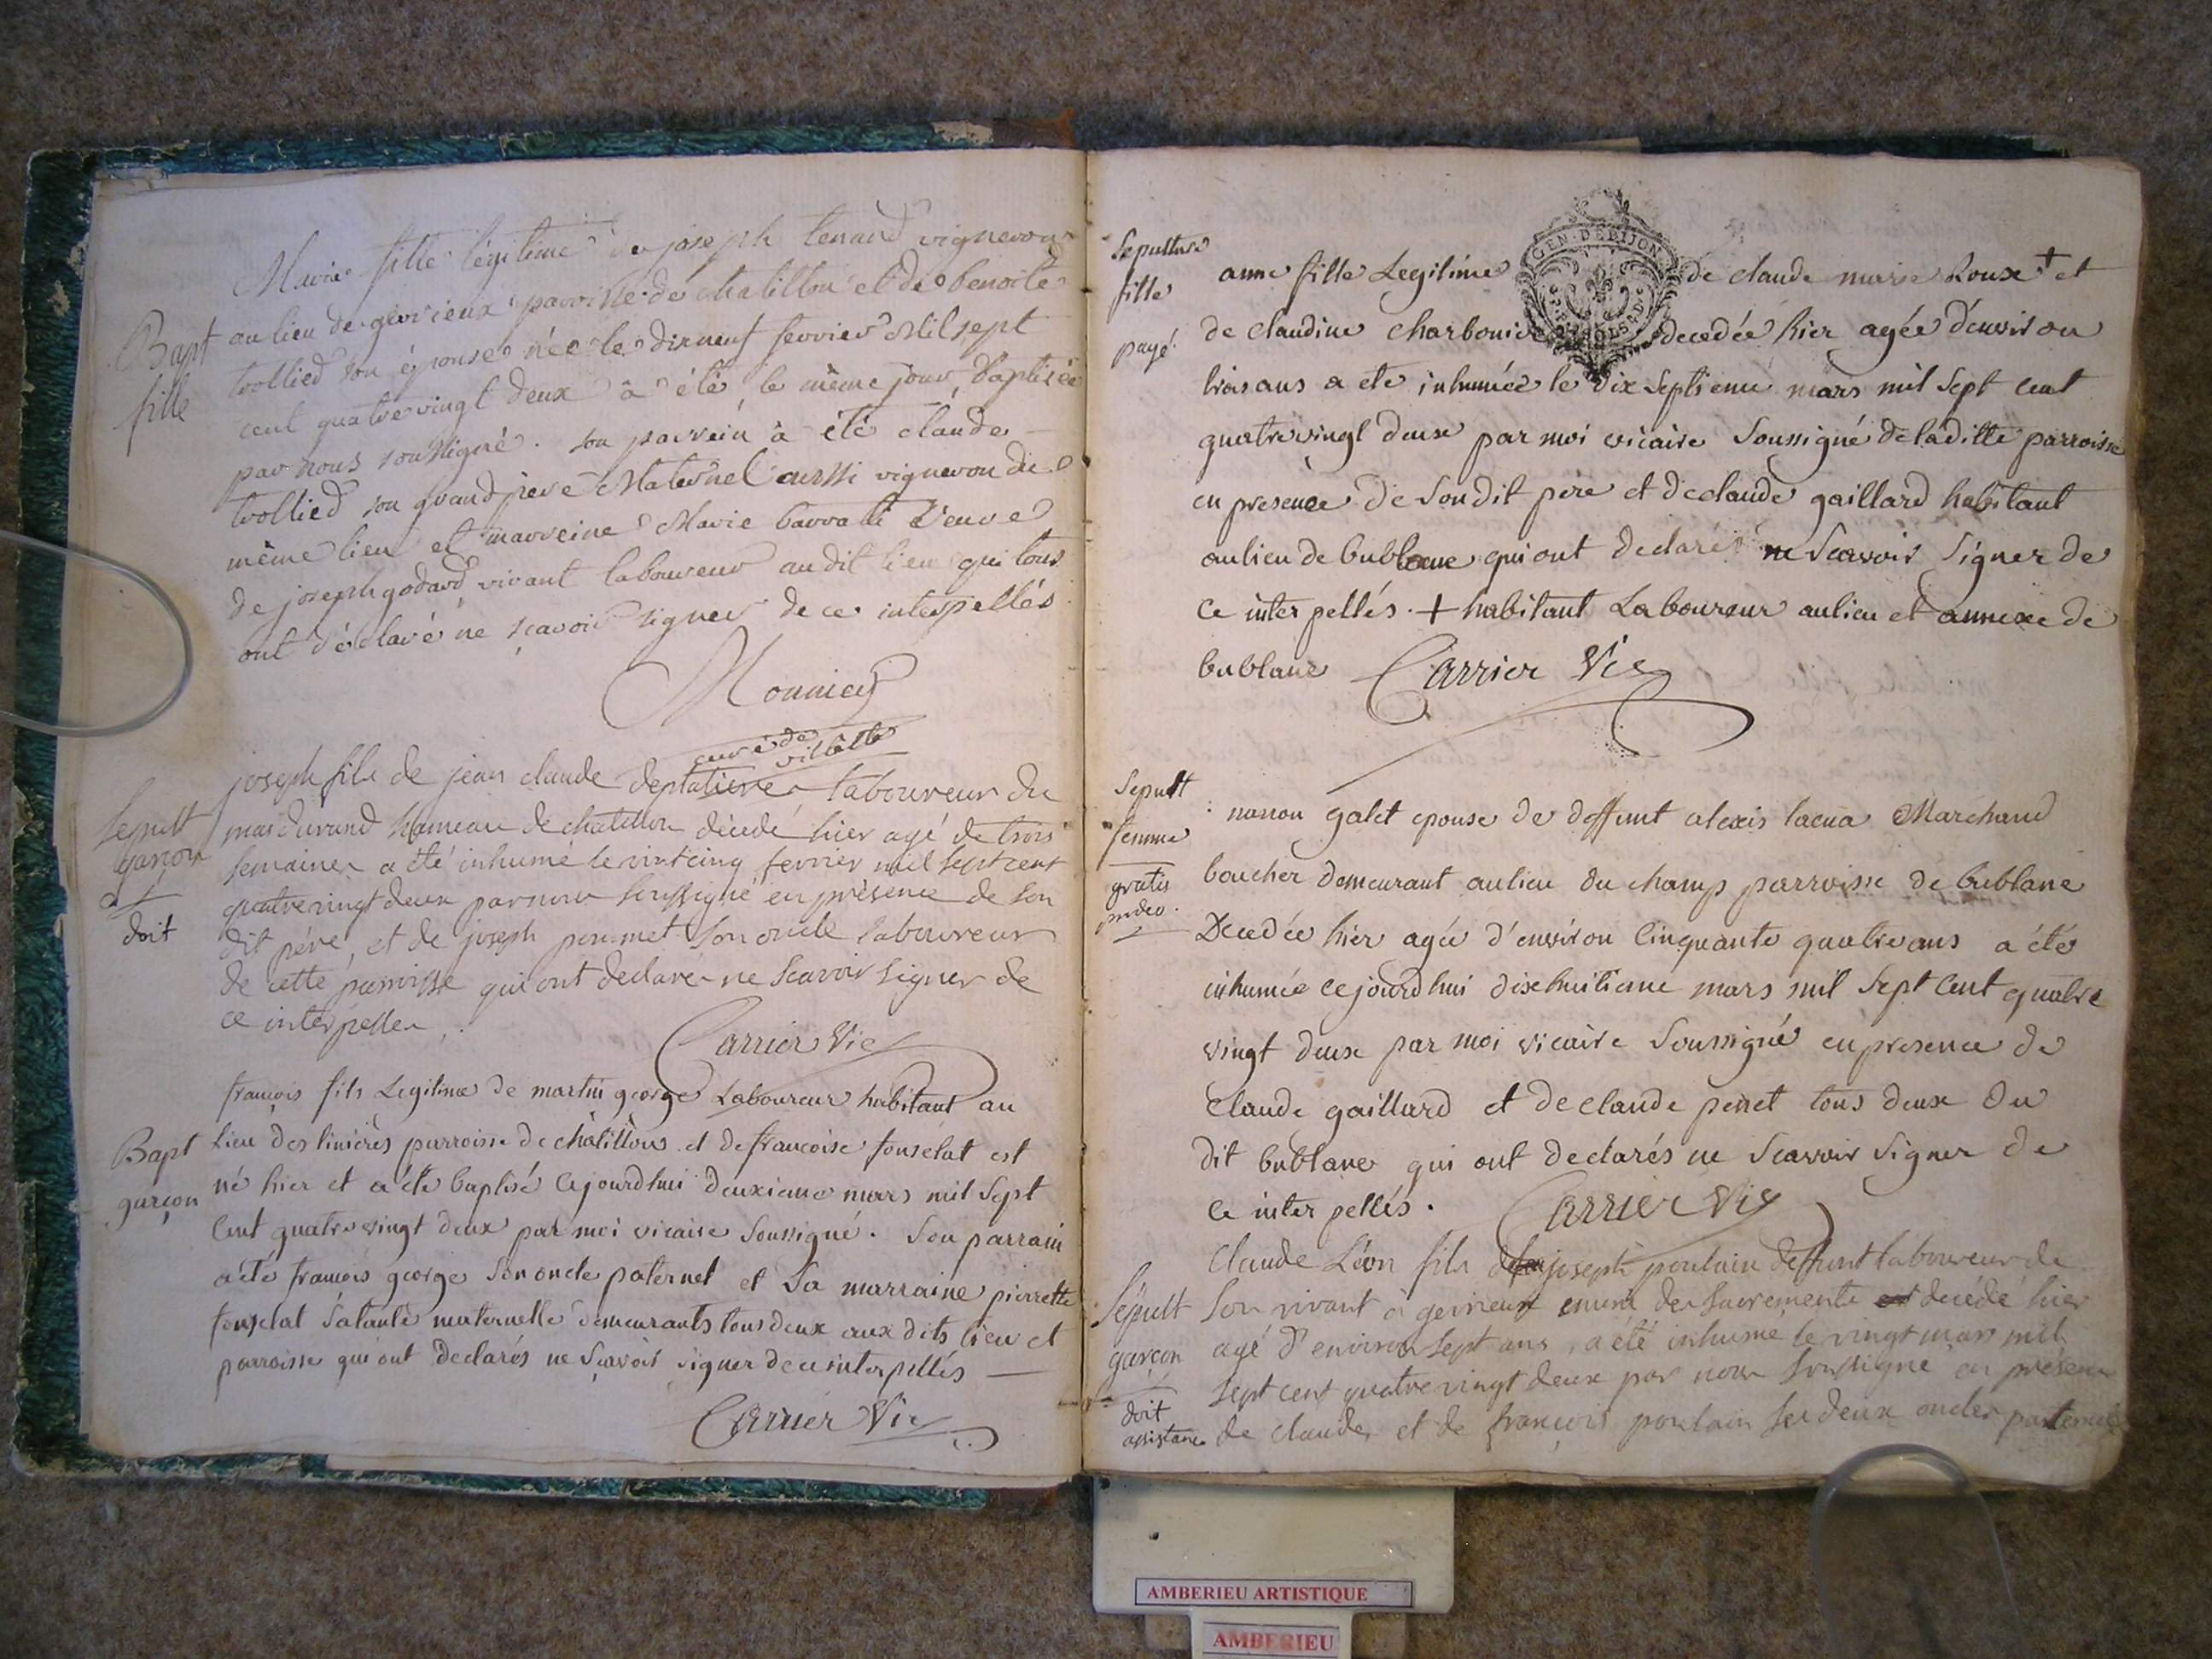 Bapt
fille
Marie fille légitime de joseph tenand vigneron
au lieu de gevrieux parroisse de chatillon et de benoite
trollied son épouse née le dixneuf fevrier Mil sept
cent quatrevingt deux à été, le même jour, baptisée
par nous soussigné. son parrein à été claude
trollied son grand père Maternel aussi vigneron du
même lieu et marreine Marie barratte Veuve
de joseph godard vivant laboureur au dit lieu qui tous
ont déclaré ne sçavoir signer de ce interpellés
Monnier
curé de
villette
Sepult
garçon
doit
joseph fils de jean claude deplatiere laboureur du
mas durand hameau de chatillon décédé hier agé de trois
semaines a été inhumé le vint cinq fevrier mil sept cent
quatrevingt deux par nous soussigné en présence de son
dit père, et de joseph pommet son oncle laboureur
de cette parroisse qui ont declarés ne scavoir signer de
ce interpelles.
Carrier Vic
Bapt
garçon
françois fils Legitime de martin george Laboureur habitant au
lieu des linieres parroisse de châtillon et de francoise fonselat est
né hier et a été baptisé cejourdhui deuxieme mars mil sept
Cent quatre vingt deux par moi vicaire soussigné. Son parrain
a été francois george son oncle paternel et Sa marraine pierrette
fonselat sa tante maternelle demeurants tous deux aux dits lieu et
parroisse qui ont declarés ne sçavoir signer de ce interpellés
Carrier Vic
Sepulture
fille
payé.
GEN. DE DIJON
anne fille Legitime de claude marie Roux + et
de claudine charbonier decedée hier agée d'environ
trois ans a ete inhumée le dix septieme mars mil sept cent
quatrevingt deux par moi vicaire soussigné de laditte parroisse
en presence de son dit pere et de claude gaillard habitant
au lieu de bublane qui ont declarés ne scavoir signer de
ce inter pellés. + habitant Laboureur au lieu et annexe de
bublane Carrier Vic
Sepult
femme
gratis
pro deo.
nanon galet epouse de deffunt alexis lacua Marchand
boucher demeurant au lieu du champ parroisse de bublane
Decedée hier agée d'environ Cinquante quatre ans a été
inhumée ce jourdhui dixhuitieme mars mil sept Cent quatre
vingt deux par moi vicaire soussigné en presence de
Claude gaillard et de claude perret tous deux du
dit bublane qui ont declarés ne scavoir signer de
ce inter pellés. Carrier Vic
Sépult
garçon
doit
assistance
Claude Léon fils joseph poulain deffunt laboureur de
son vivant à gevrieux muni des sacrements décédé hier
agé d'environ sept ans, a été inhumé le vingt mars mil
sept cent quatre vingt deux par nous soussigné en présence
de claude et de françois poulain ses deux oncles paternels
AMBERIEU ARTISTIQUE
AMBERIEU